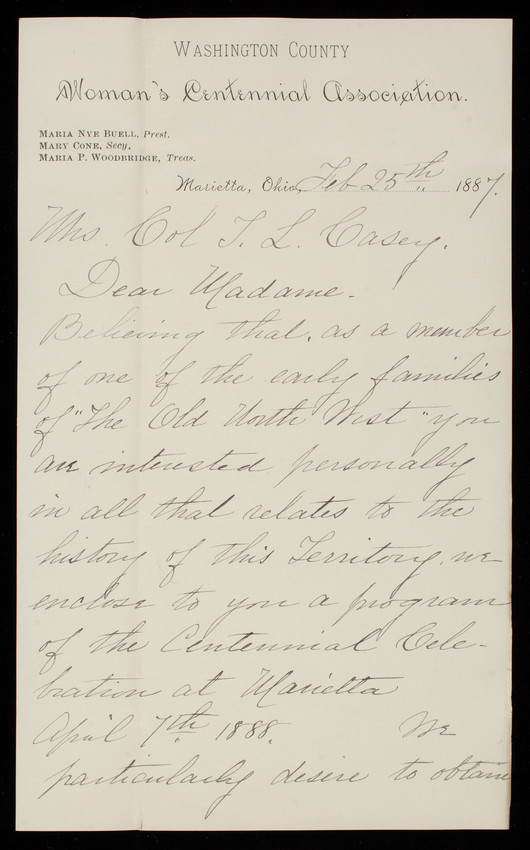 WASHINGTON COUNTY
Woman's Centennial Association.
MARIA NYE BUELL, Prest.
MARY CONE, Secy.
MARIA P. WOODBRIDGE, Treas.
Marietta, Ohio, Feb 25th 1887.
Mrs. Col T. L. Casey.
Dear Madame-
Believing that, as a member
of one of the early families
of "The Old North West" you
are interested personally
in all that relates to the
history of this Territory, we
enclose to you a program
of the Centennial Cele-
bration at Marietta
April 7th 1888. We
particularly desire to obtain